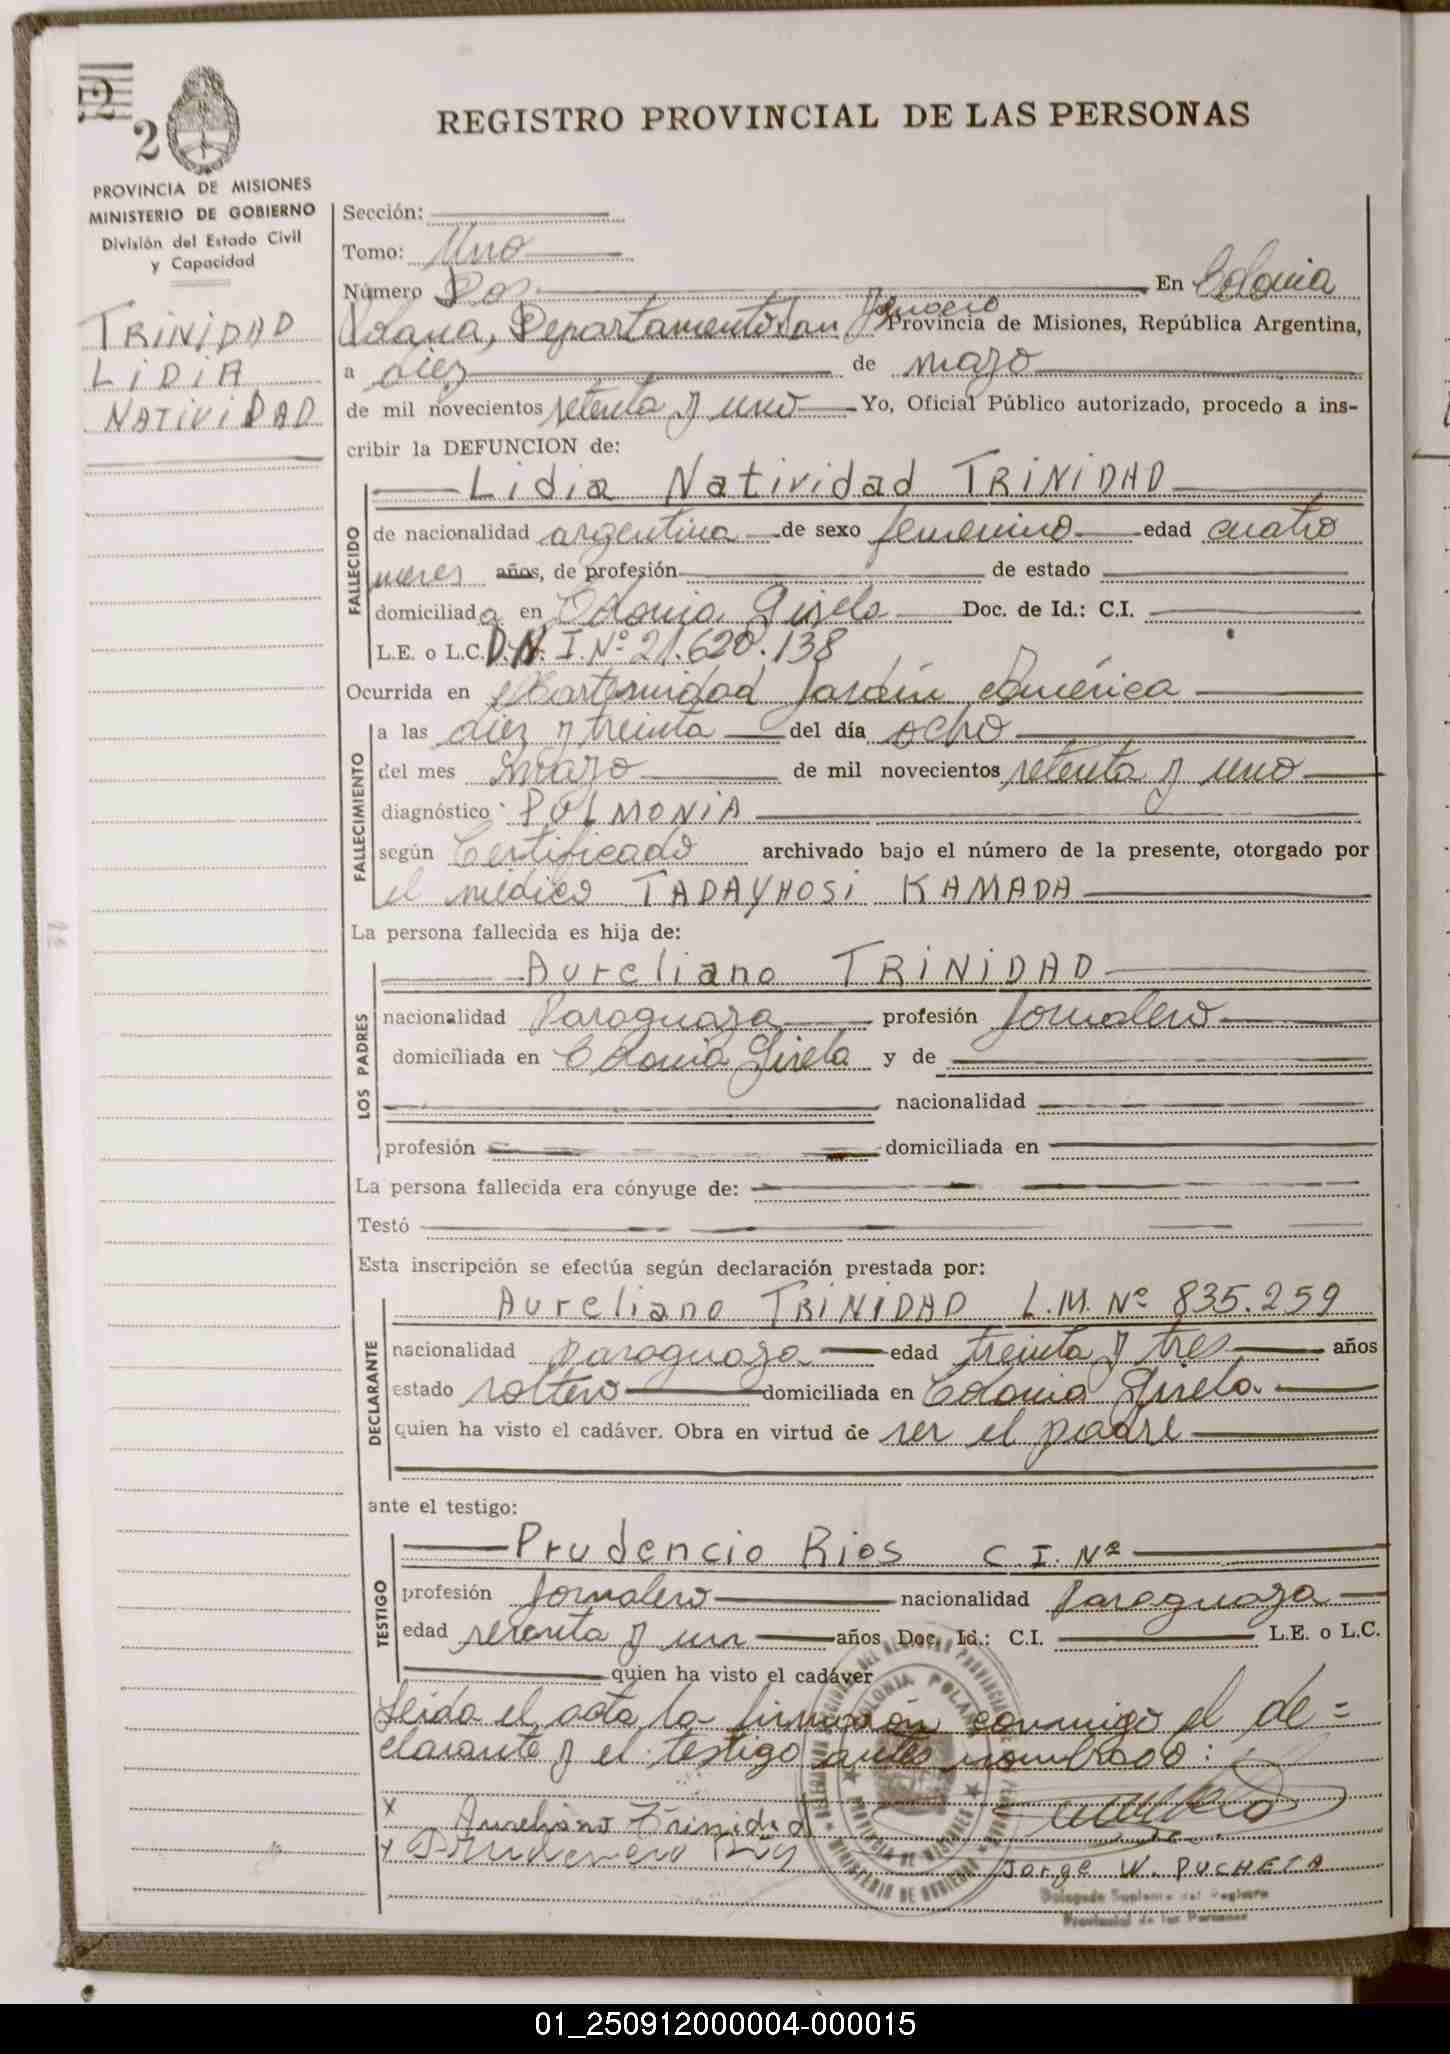 2
2
REGISTRO PROVINCIAL DE LAS PERSONAS
PROVINCIA DE MISIONES
MINISTERIO DE GOBIERNO
División del Estado Civil
y Capacidad
TRINIDAD
LIDIA
NATIVIDAD
Sección:
Tomo: Uno
Número Dos En Colonia
Polana, Departamento San Ignacio Provincia de Misiones, República Argentina,
a diez de mayo
de mil novecientos setenta y uno Yo, Oficial Público autorizado, procedo a ins-
cribir la DEFUNCION de:
Lidia Natividad TRINIDAD
FALLECIDO
de nacionalidad argentina de sexo femenino edad cuatro
meses años, de profesión de estado
domiciliada en Colonia Gisela Doc. de Id.: C.I.
L.E. o L.C. D.N.I. Nº 21.620.138
Ocurrida en Maternidad Jardín América
FALLECIMIENTO
a las diez y treinta del día ocho
del mes mayo de mil novecientos setenta y uno
diagnóstico PULMONIA
según Certificado archivado bajo el número de la presente, otorgado por
el médico TADAYHOSI KAMADA
La persona fallecida es hija de:
LOS PADRES
Aureliano TRINIDAD
nacionalidad Paraguaya profesión Jornalero
domiciliada en Colonia Gisela y de
nacionalidad
profesión domiciliada en
La persona fallecida era cónyuge de:
Testó
Esta inscripción se efectúa según declaración prestada por:
DECLARANTE
Aureliano TRINIDAD L.M. Nº 835.259
nacionalidad paraguaya edad treinta y tres años
estado soltero domiciliada en Colonia Gisela.
quien ha visto el cadáver. Obra en virtud de ser el padre
ante el testigo:
TESTIGO
Prudencio Rios C.I. Nº
profesión Jornalero nacionalidad Paraguaya
edad sesenta y un años Doc. Id.: C.I. L.E. o L.C.
quien ha visto el cadáver
Leida el acta la firmarón conmigo el de=
clarante y el testigo antes nombrado:
x Aureliano Trinidad
x Prudencio Rios
COLONIA POLANA
PROVINCIA DE MISIONES
MINISTERIO DE GOBIERNO
Jorge W. PUCHETA
Delegado Suplente del Registro
Provincial de las Personas
01_250912000004-000015